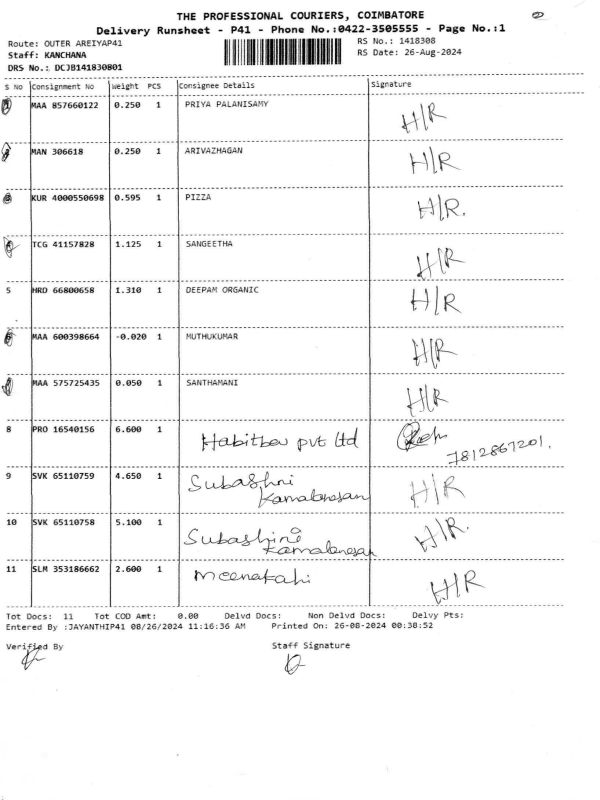 THE PROFESSIONAL COURIERS, COIMBATORE
Delivery Runsheet - P41 - Phone No.:0422-3505555 - Page No.:1
Route: OUTER AREIYAP41 RS No.: 1418308
Staff: KANCHANA RS Date: 26-Aug-2024
DRS No.: DCJB141830801
S No Consignment No Weight PCS Consignee Details Signature
MAA 857660122 0.250 1 PRIYA PALANISAMY H/R
MAN 306618 0.250 1 ARIVAZHAGAN H/R
KUR 4000550698 0.595 1 PIZZA H/R.
TCG 41157828 1.125 1 SANGEETHA H/R
5 HRD 66800658 1.310 1 DEEPAM ORGANIC H/R
MAA 600398664 -0.020 1 MUTHUKUMAR H/R
MAA 575725435 0.050 1 SANTHAMANI H/R
8 PRO 16540156 6.600 1 pvt ltd 7812867201.
9 SVK 65110759 4.650 1 Subashni H/R
10 SVK 65110758 5.100 1 Subashini H/R.
11 SLM 353186662 2.600 1 Meenakahi H/R
Tot Docs: 11 Tot COD Amt: 0.00 Delvd Docs: Non Delvd Docs: Delvy Pts:
Entered By :JAYANTHIP41 08/26/2024 11:16:36 AM Printed On: 26-08-2024 00:38:52
Verified By Staff Signature